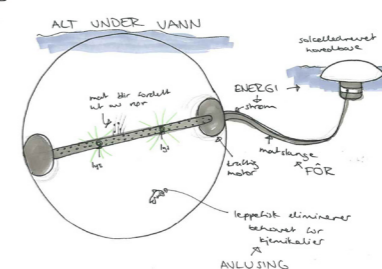 ALT UNDER VANN
solcelledrevet
hovedbase
mat blir fordelt
ut av rør
ENERGI
strøm
lys
lys
kraftig
motor
matslange
FÔR
leppefisk eliminerer
behovet for
kjemikalier
AVLUSING